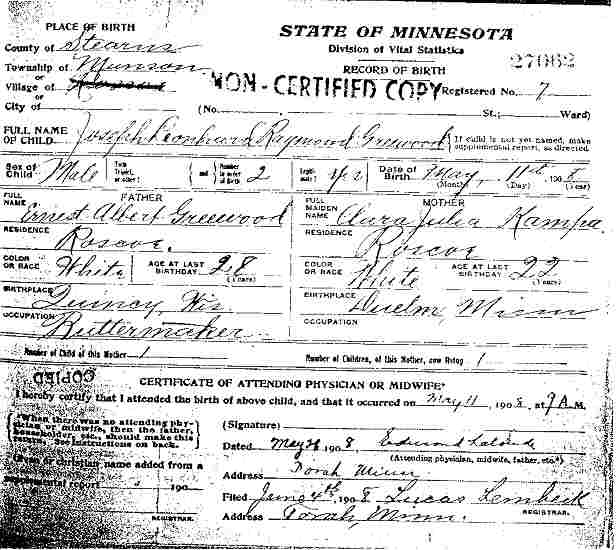 PLACE OF BIRTH
STATE OF MINNESOTA
County of Stearns
Division of Vital Statistics
27062
Township of Munson
RECORD OF BIRTH
or
Village of
NON-CERTIFIED COPY
Registered No. 7
or
City of (No. St.; Ward)
FULL NAME OF CHILD Joseph Leonhard Raymond Greewood { If child is not yet named, make supplemental report, as directed.
Sex of Child Male Twin Triplet, or other? { and { Number in order of birth 2 Legitimate? yes Date of Birth May, 11th 1908
(Month) (Day) (Year)
FATHER
FULL NAME Ernest Albert Greewood
RESIDENCE Roscoe.
COLOR OR RACE White AGE AT LAST BIRTHDAY 28 (Years)
BIRTHPLACE Quincy, Wis
OCCUPATION Buttermaker
MOTHER
FULL MAIDEN NAME Clara Julia Kampa
RESIDENCE Roscoe
COLOR OR RACE White AGE AT LAST BIRTHDAY 22 (Years)
BIRTHPLACE Duelm, Minn
OCCUPATION
Number of Child of this Mother 1
Number of Children, of this Mother, now living 1
COPIED
CERTIFICATE OF ATTENDING PHYSICIAN OR MIDWIFE*
I hereby certify that I attended the birth of above child, and that it occurred on May 11 1908, at 7 A.M.
*When there was no attending physician or midwife, then the father, householder, etc., should make this return. See instructions on back.
(Signature)
Dated May 1908
(Attending physician, midwife, father, etc.*)
Given or christian name added from a
supplemental report 190
REGISTRAR.
Address Torah Minn
Filed June 4th 1908 Lucas Lembeck
REGISTRAR.
Address Torah, Minn.